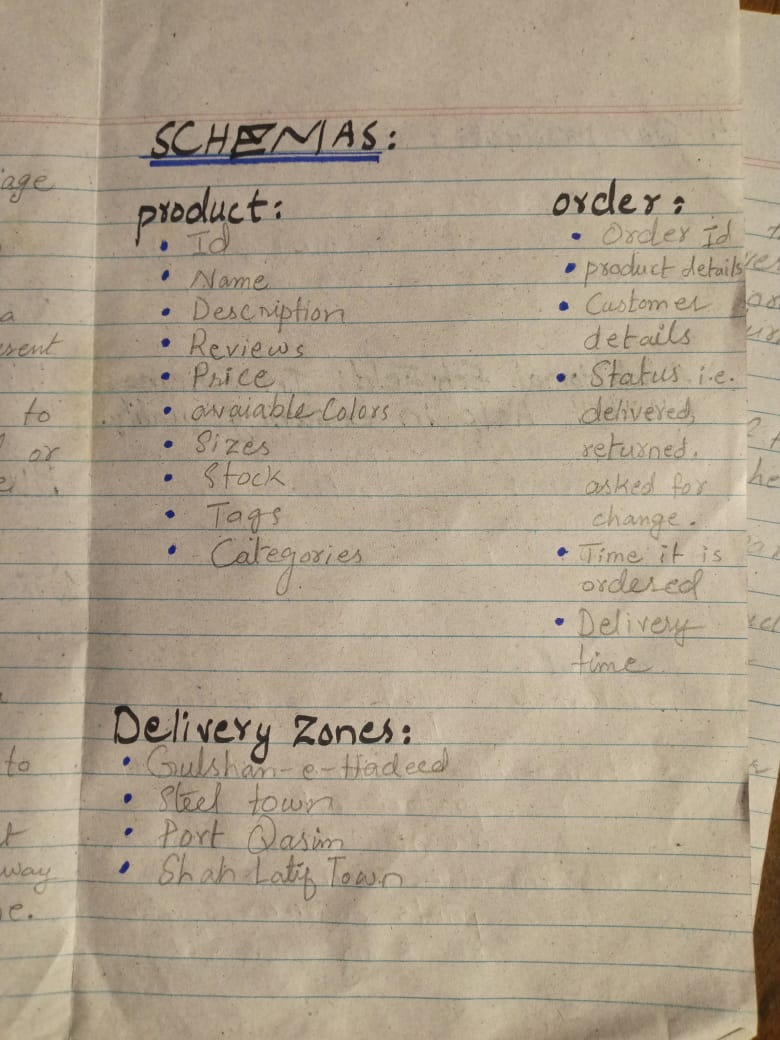 SCHEMAS:
product:
• Id
• Name
• Description
• Reviews
• Price
• avaiable Colors
• Sizes
• Stock
• Tags
• Categories
order:
• Order Id
• product details
• Customer
details
• Status i.e.
delivered,
returned.
asked for
change.
• Time it is
ordered
• Delivery
time
Delivery Zones:
• Gulshan-e-Hadeed
• Steel town
• Port Qasim
• Shah Latif Town
age
a
to
or
to
way